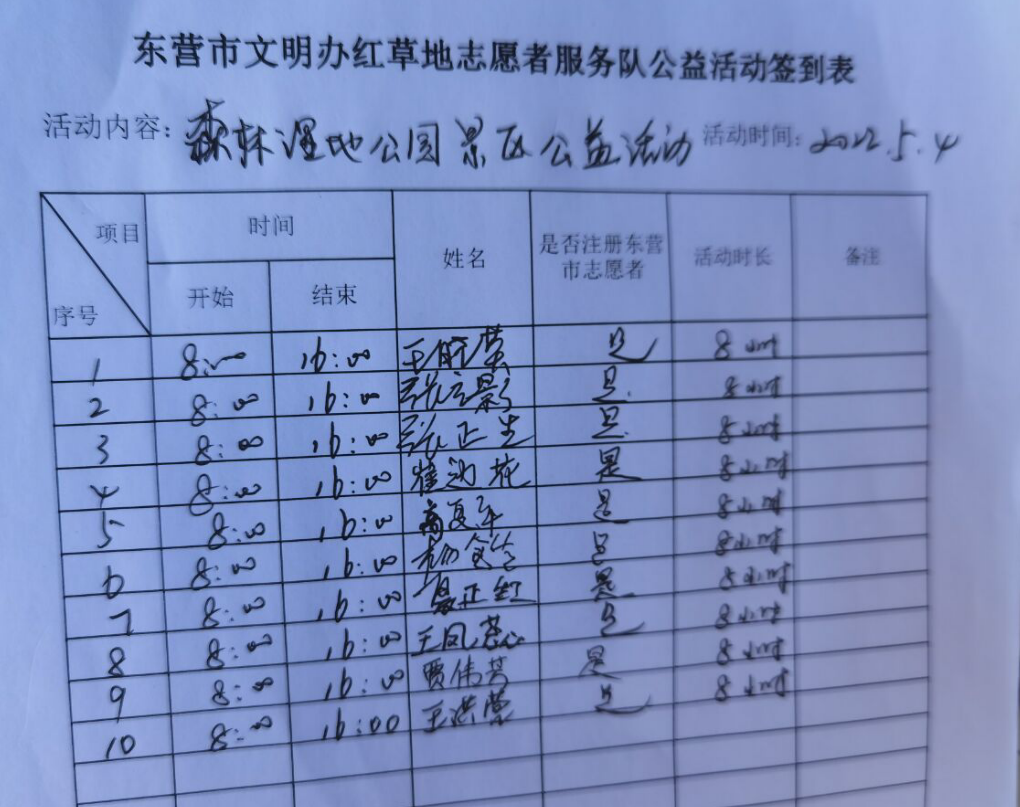 东营市文明办红草地志愿者服务队公益活动签到表
活动内容：森林湿地公园景区公益活动 活动时间：2022.5.4
项目 序号 时间 姓名 是否注册东营市志愿者 活动时长 备注
开始 结束
1 8:00 16:00 王 是 8小时
2 8:00 16:00 张立影 是 8小时
3 8:00 16:00 张正生 是 8小时
4 8:00 16:00 花 是 8小时
5 8:00 16:00 高夏军 是 8小时
6 8:00 16:00 杨 是 8小时
7 8:00 16:00 聂正红 是 8小时
8 8:00 16:00 王凤 是 8小时
9 8:00 16:00 贾伟芳 是 8小时
10 8:00 16:00 王洪荣 是 8小时